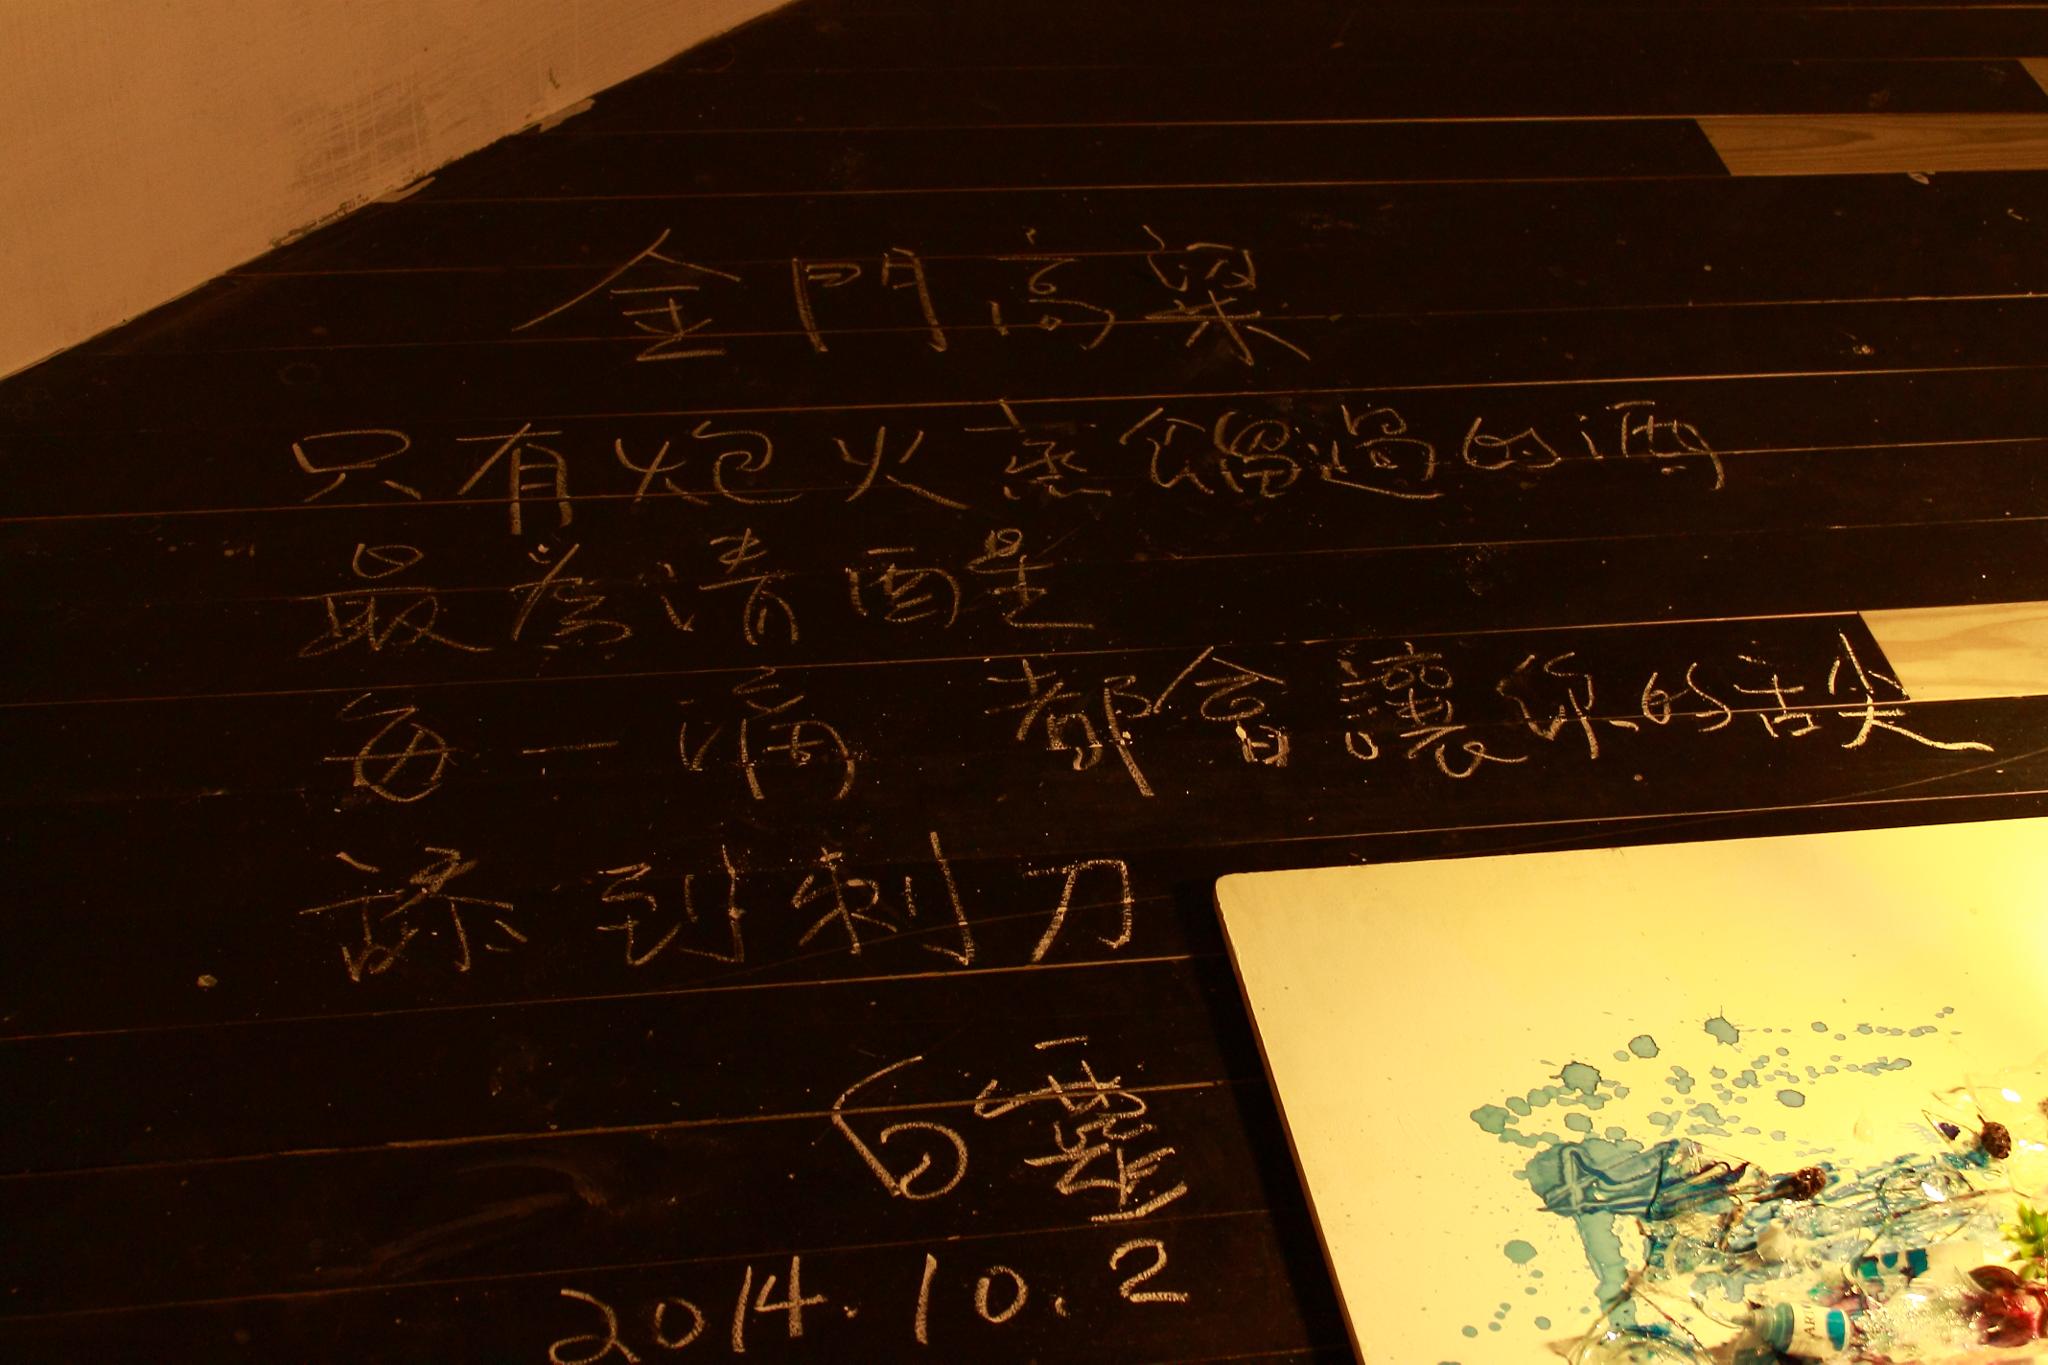 金門高粱
只有炮火蒸餾過的酒
最為清醒
每一滴 都會讓你的舌尖
舔到刺刀
白靈
2014.10.2